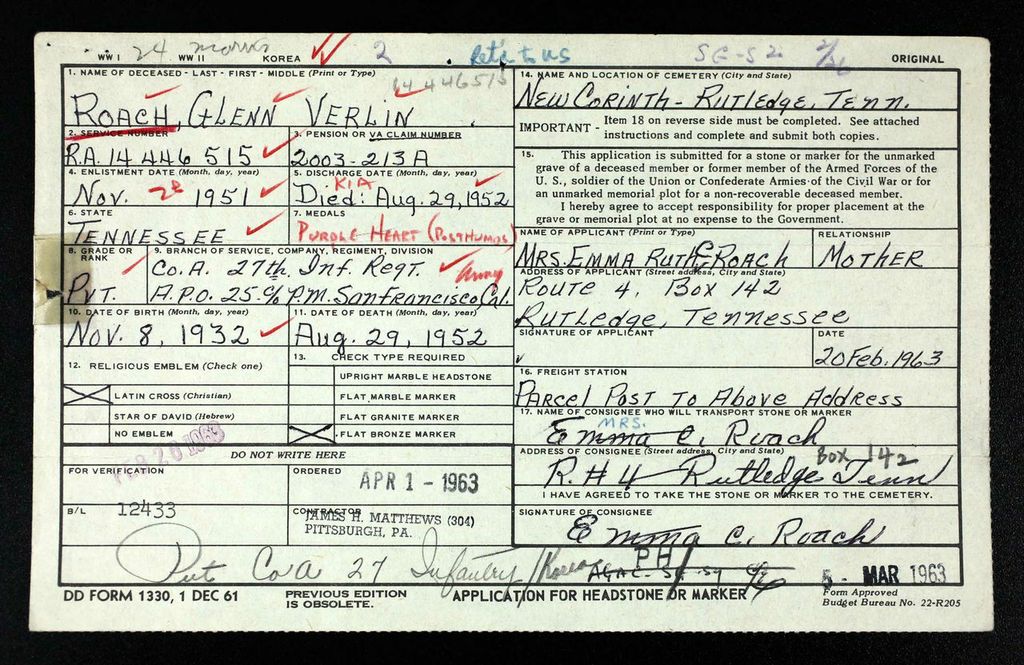 WW I 24 WW II KOREA 2 Ret'n to us SE-52 2/26 ORIGINAL
14446515
1. NAME OF DECEASED - LAST - FIRST - MIDDLE (Print or Type)
ROACH, GLENN VERLIN
2. SERVICE NUMBER
RA. 14 446 515
3. PENSION OR VA CLAIM NUMBER
2003-213 A
4. ENLISTMENT DATE (Month, day, year)
Nov. 1951
5. DISCHARGE DATE (Month, day, year)
KIA
Died: Aug. 29, 1952
6. STATE
TENNESSEE
7. MEDALS
PURPLE HEART (POSTHUMOS)
8. GRADE OR RANK
PVT.
9. BRANCH OF SERVICE, COMPANY, REGIMENT, DIVISION
Co. A. 27th. Inf. Regt. Army
A.P.O. 25 c/o P.M. San Francisco Cal.
10. DATE OF BIRTH (Month, day, year)
Nov. 8, 1932
11. DATE OF DEATH (Month, day, year)
Aug. 29, 1952
12. RELIGIOUS EMBLEM (Check one)
LATIN CROSS (Christian)
STAR OF DAVID (Hebrew)
NO EMBLEM
13. CHECK TYPE REQUIRED
UPRIGHT MARBLE HEADSTONE
FLAT MARBLE MARKER
FLAT GRANITE MARKER
FLAT BRONZE MARKER
14. NAME AND LOCATION OF CEMETERY (City and State)
NEW CORINTH - RUTLEDGE, TENN.
IMPORTANT - Item 18 on reverse side must be completed. See attached
instructions and complete and submit both copies.
15. This application is submitted for a stone or marker for the unmarked
grave of a deceased member or former member of the Armed Forces of the
U. S., soldier of the Union or Confederate Armies of the Civil War or for
an unmarked memorial plot for a non-recoverable deceased member.
I hereby agree to accept responsibility for proper placement at the
grave or memorial plot at no expense to the Government.
NAME OF APPLICANT (Print or Type)
MRS. EMMA RUTH C. ROACH
RELATIONSHIP
MOTHER
ADDRESS OF APPLICANT (Street address, City and State)
ROUTE 4, BOX 142
RUTLEDGE, TENNESSEE
SIGNATURE OF APPLICANT
DATE
20 Feb. 1963
16. FREIGHT STATION
PARCEL POST TO ABOVE ADDRESS
17. NAME OF CONSIGNEE WHO WILL TRANSPORT STONE OR MARKER
MRS.
Emma C. Roach
ADDRESS OF CONSIGNEE (Street address, City and State)
BOX 142
R. # 4 Rutledge Tenn
I HAVE AGREED TO TAKE THE STONE OR MARKER TO THE CEMETERY.
SIGNATURE OF CONSIGNEE
Emma C. Roach
DO NOT WRITE HERE
FEB 20 1963
FOR VERIFICATION
ORDERED
APR 1 - 1963
B/L 12433
CONTRACTOR
JAMES H. MATTHEWS (304)
PITTSBURGH, PA.
Pvt Co A 27 Infantry / Korea PH
AGAC-
5 - MAR 1963
DD FORM 1330, 1 DEC 61
PREVIOUS EDITION
IS OBSOLETE.
APPLICATION FOR HEADSTONE OR MARKER
Form Approved
Budget Bureau No. 22-R205